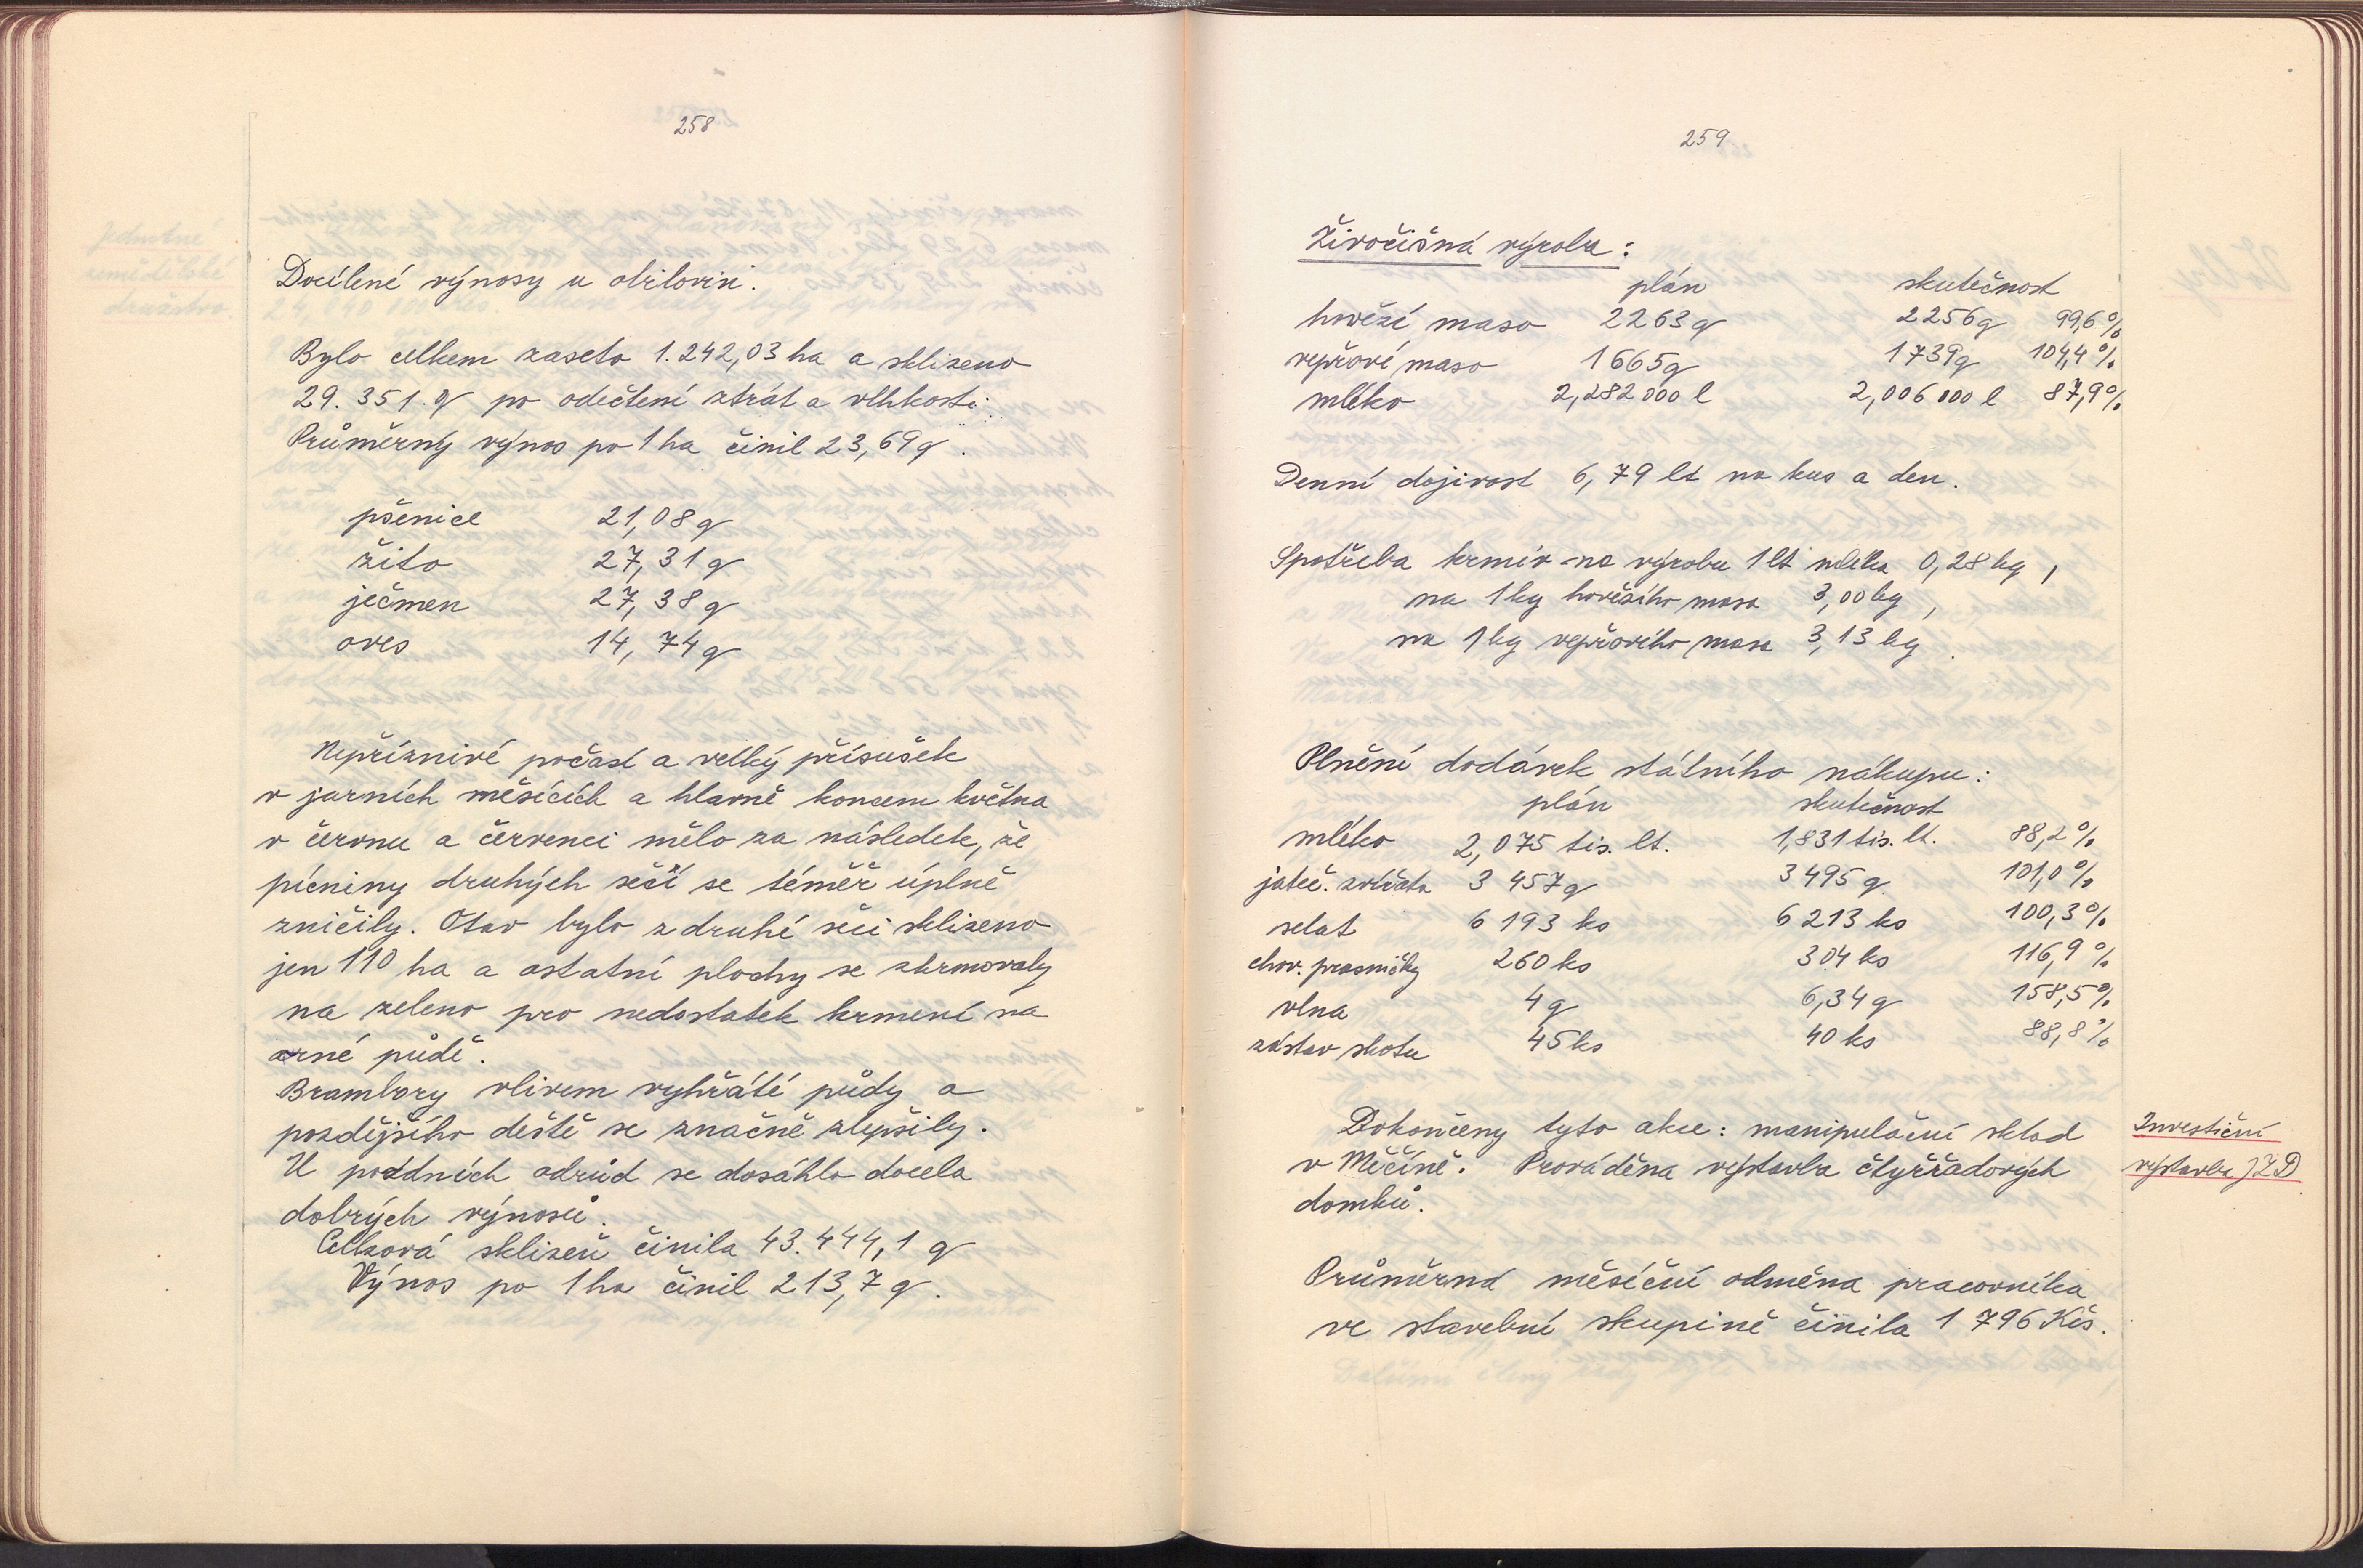 258
Docílené výnosy u obilovin.
Bylo celkem zaseto 1.242,03 ha a sklizeno
29.351.q po odečtení ztrát a vlhkosti.
Průměrný výnos po 1 ha činil 23,69 q.
pšenice 21,08 q
žito 27,31 q
ječmen 27,38 q
oves 14,74 q
Nepříznivé počasí a velký přísušek
v jarních měsících a hlavně koncem května
v červnu a červenci mělo za následek, že
pícniny druhých sečí se téměř úplně
zničily. Otav bylo z druhé seči sklizeno
jen 110 ha a ostatní plochy se zkrmovaly
na zeleno pro nedostatek krmení na
orné půdě.
Brambory vlivem vyhřáté půdy a
pozdějšího deště se značně zlepšily.
U pozdních odrůd se dosáhlo docela
dobrých výnosů.
Celková sklizeň činila 43.444,1 q
Výnos po 1 ha činil 213,7 q.
259
Živočišná výroba:
plán skutečnost
hovězí maso 2263 q 2256 q 99,6 %
vepřové maso 1665 q 1739 q 104,4 %
mléko 2,282 000 l 2,006 000 l 87,9 %
Denní dojivost 6,79 lt na kus a den.
Spotřeba krmiv na výrobu 1 lt mléka 0,28 kg,
na 1 kg hovězího masa 3,00 kg,
na 1 kg vepřového masa 3,13 kg.
Plnění dodávek státního nákupu:
plán skutečnost
mléko 2,075 tis. lt. 1,831 tis. lt. 88,2 %
jateč. zvířata 3 457 q 3 495 q 101,0 %
selat 6 193 ks 6 213 ks 100,3 %
chov. prasničky 260 ks 304 ks 116,9 %
vlna 4 q 6,34 q 158,5 %
zástav skotu 45 ks 40 ks 88,8 %
Dokončeny tyto akce: manipulační sklad
v Měčíně. Prováděna výstavba čtyřřadových
domků.
Investiční
výstavba JZD
Průměrná měsíční odměna pracovníka
ve stavební skupině činila 1 796 Kčs.